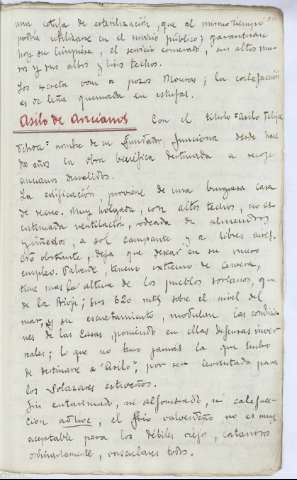 una estufa de esterilización, que al mismo tiempo
podría utilizarse en el servicio público; garantizan
hoy su limpieza, el servicio esmerado, sus altos mu-
ros y sus altos y techos.
Los van a pozos Mouras; la calefacción
es de leña quemada en estufas.
Asilo de Ancianos Con el título "Asilo Felipe
nombre de su fundador, funciona desde hace
años la obra benéfica destinada a recoger
ancianos desvalidos.
La edificación proviene de una burguesa casa
de recreo. Muy holgada, con altos techos, no es-
catimada ventilación, rodeada de almendros
y viñedos, a sol campante y a libres aires.
No obstante, deja que desear en su nuevo
empleo. Valverde, terreno extremo de
tiene mas la altura de los pueblos sorianos, que
de la Rioja; sus 620 mts sobre el nivel del
mar, y su modulan las condicio-
nes de las casas, poniendo en ellas defensas inver-
nales; lo que no tuvo jamás la que hubo
de destinarse a "Asilo", por ser inventada para
los solazares estivales.
Sin entarimado, ni alfombrado, ni calefac-
cion, el frío no es muy
aceptable para los débiles viejos, catarrosos
ordinariamente, vasculares todos.